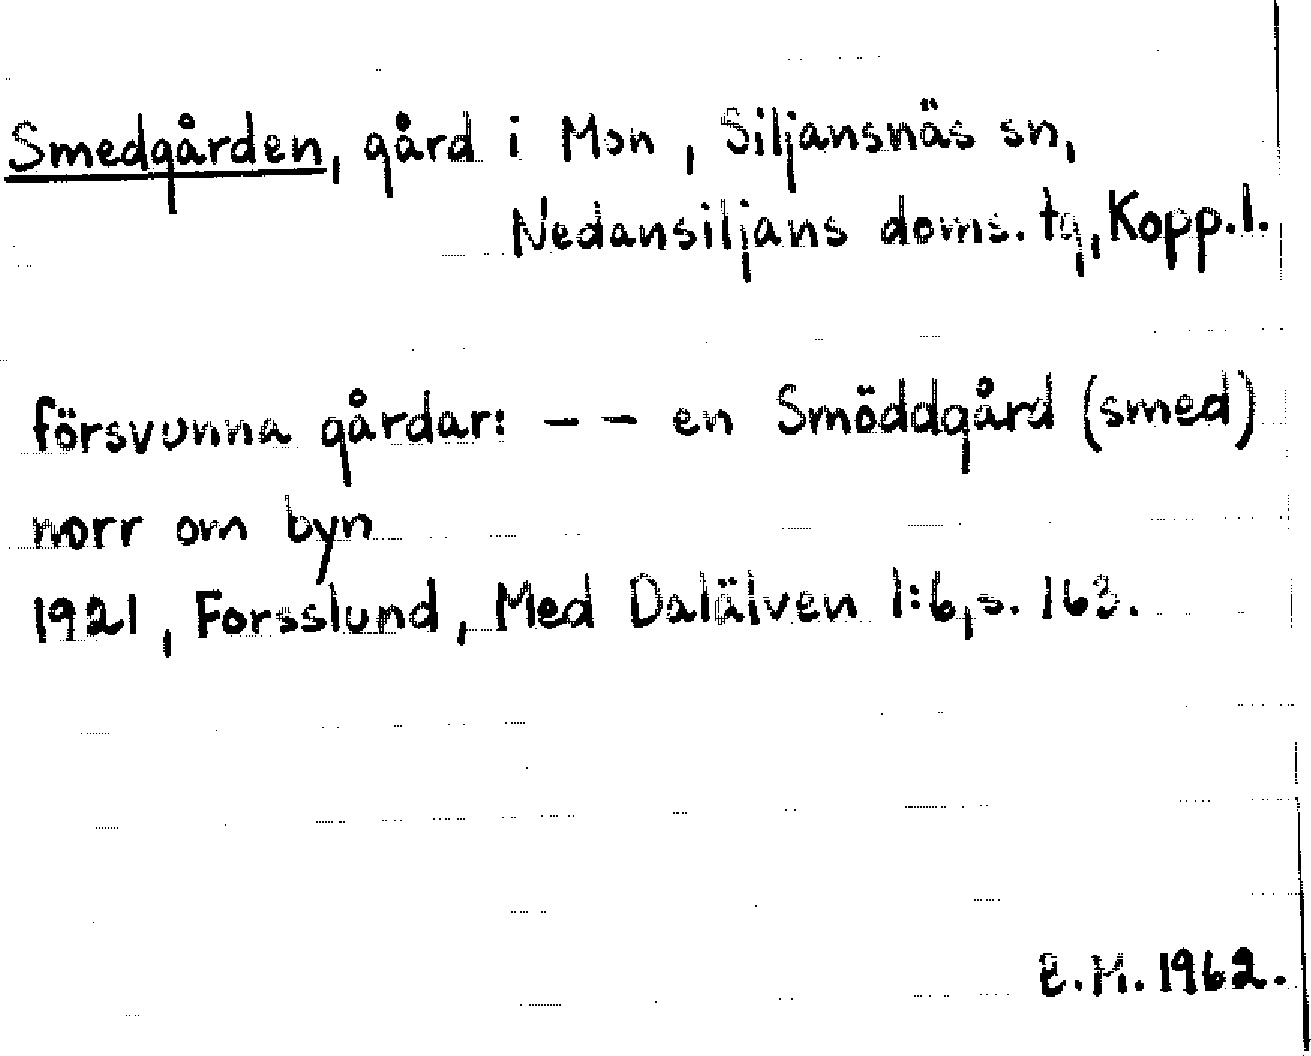 Smedgården, gård i Mon, Siljansnäs sn,
Nedansiljans doms. tg, Kopp.l.
försvunna gårdar: - - en Smöddgård (smed)
norr om byn
1921, Forsslund, Med Dalälven 1:6, s. 163.
E.M. 1962.